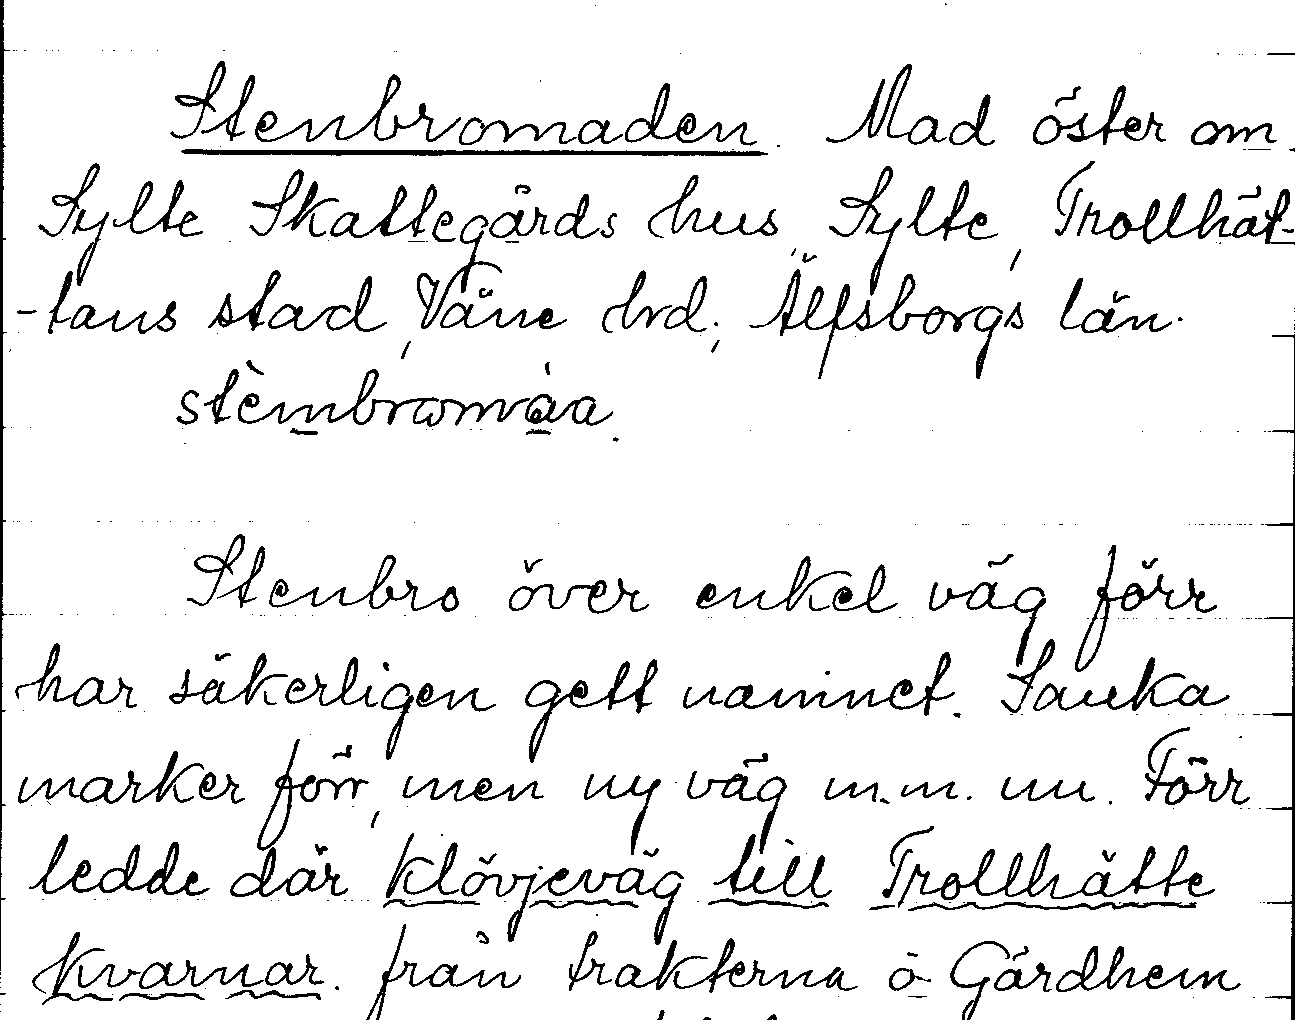 Stenbromaden. Mad öster om
Sylte Skattegårds hus, Sylte, Trollhät-
-tans stad, Väne hrd., Älfsborgs län.
stèmbromàa.
Stenbro över enkel väg förr
har säkerligen gett namnet. Sanka
marker förr, men ny väg m.m. nu. Förr
ledde där klövjeväg till Trollhätte
kvarnar. från trakterna ö Gärdhem